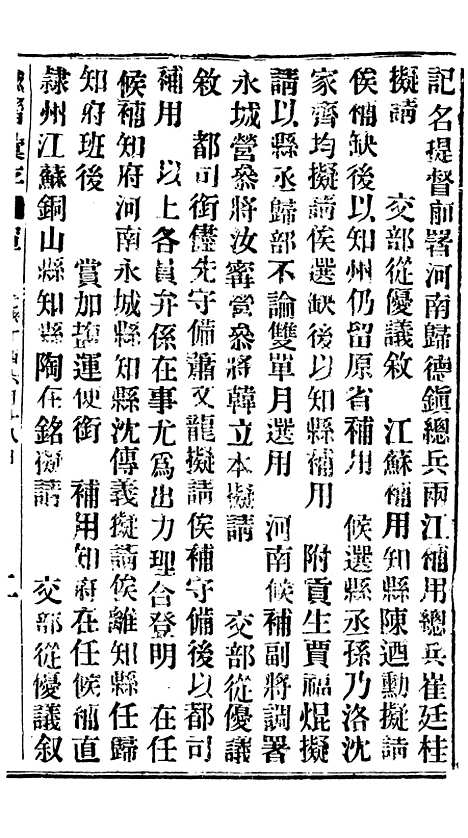 記名提督前署河南歸德鎮總兵兩江補用總兵崔廷桂
擬請　交部從優議敘　江蘇補用知縣陳迺勳擬請
俟補缺後以知州仍留原省補用　候選縣丞孫乃洛沈
家齊均擬請俟選缺後以知縣補用　附貢生賈福焜擬
請以縣丞歸部不論雙單月選用　河南候補副將調署
永城營叅將汝寗營叅將韓立本擬請　交部從優議
敘　都司銜儘先守備蕭文龍擬請俟補守備後以都司
補用　以上各員弁係在事尤爲出力理合登明　在任
候補知府河南永城縣知縣沈傳義擬請俟離知縣任歸
知府班後　賞加鹽運使銜　補用知府在任候補直
隸州江蘇銅山縣知縣陶在銘擬請　交部從優議叙